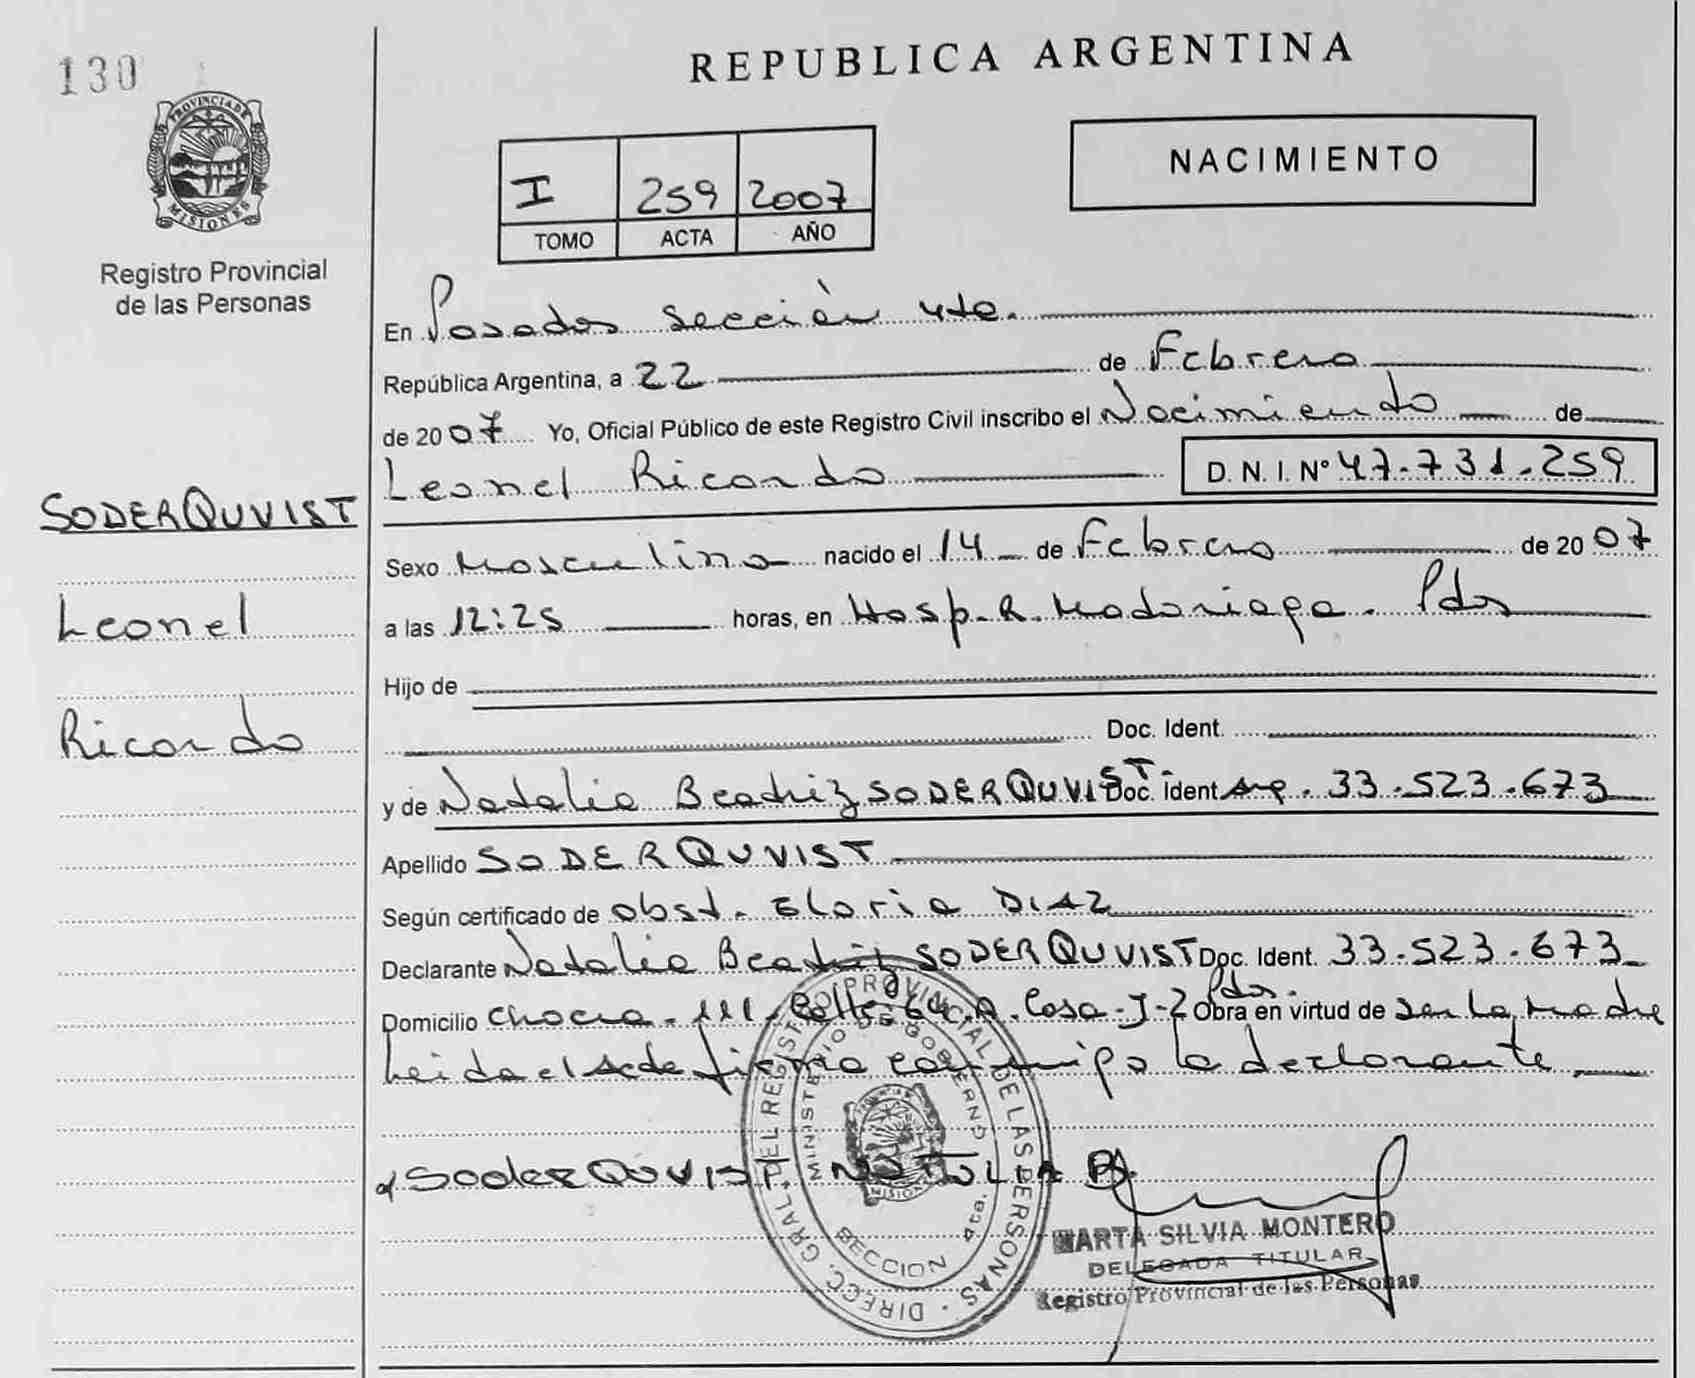 130
PROVINCIA DE
MISIONES
Registro Provincial
de las Personas
SODERQUVIST
Leonel
Ricardo
REPUBLICA ARGENTINA
I 259 2007
TOMO ACTA AÑO
NACIMIENTO
En Posadas sección 4ta.
República Argentina, a 22 de Febrero
de 2007 Yo, Oficial Público de este Registro Civil inscribo el Nacimiento de
Leonel Ricardo D. N. I. Nº 47.731.259
Sexo Masculino nacido el 14 de Febrero de 2007
a las 12:25 horas, en Hosp. R. Madariaga. Pdas
Hijo de
Doc. Ident.
y de Natalia Beatriz SODERQUVIST Doc. ident Arg. 33.523.673
Apellido SODERQUVIST
Según certificado de obst. Gloria DIAZ
Declarante Natalia Beatriz SODERQUVIST Doc. Ident. 33.523.673
Domicilio Chacra. 111. Calle 64.A. Casa-J-2 Pdas. Obra en virtud de ser la madre
Leida el Acta firma conmigo la declarante
SoderQUVIST NATALIA B.
DIRECC. GRAL. DEL REGISTRO PROVINCIAL DE LAS PERSONAS
MINISTERIO DE GOBIERNO
MISIONES
SECCION 4ta.
MARTA SILVIA MONTERO
DELEGADA TITULAR
Registro Provincial de las Personas